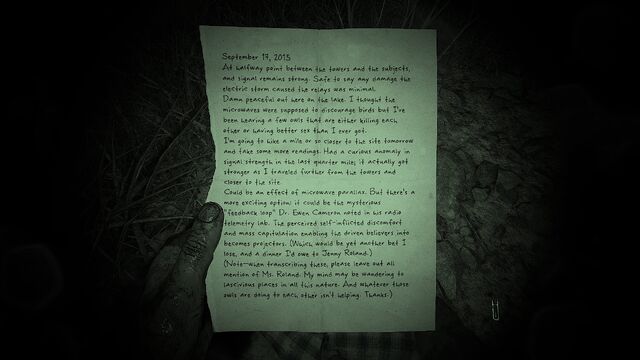 September 17, 2015
At halfway point between the towers and the subjects,
and signal remains strong. Safe to say any damage the
electric storm caused the relays was minimal.
Damn peaceful out here on the lake. I thought the
microwaves were supposed to discourage birds but I've
been hearing a few owls that are either killing each
other or having better sex than I ever got.
I'm going to hike a mile or so closer to the site tomorrow
and take some more readings. Had a curious anomaly in
signal strength in the last quarter mile; it actually got
stronger as I traveled further from the towers and
closer to the site.
Could be an effect of microwave parallax. But there's a
more exciting option: it could be the mysterious
"feedback loop" Dr. Ewen Cameron noted in his radio
telemetry lab. The perceived self-inflicted discomfort
and mass capitulation enabling the driven believers into
becomes projectors. (Which would be yet another bet I
lose, and a dinner I'd owe to Jenny Roland.)
(Note--when transcribing these, please leave out all
mention of Ms. Roland. My mind may be wandering to
lascivious places in all this nature. And whatever those
owls are doing to each other isn't helping. Thanks.)